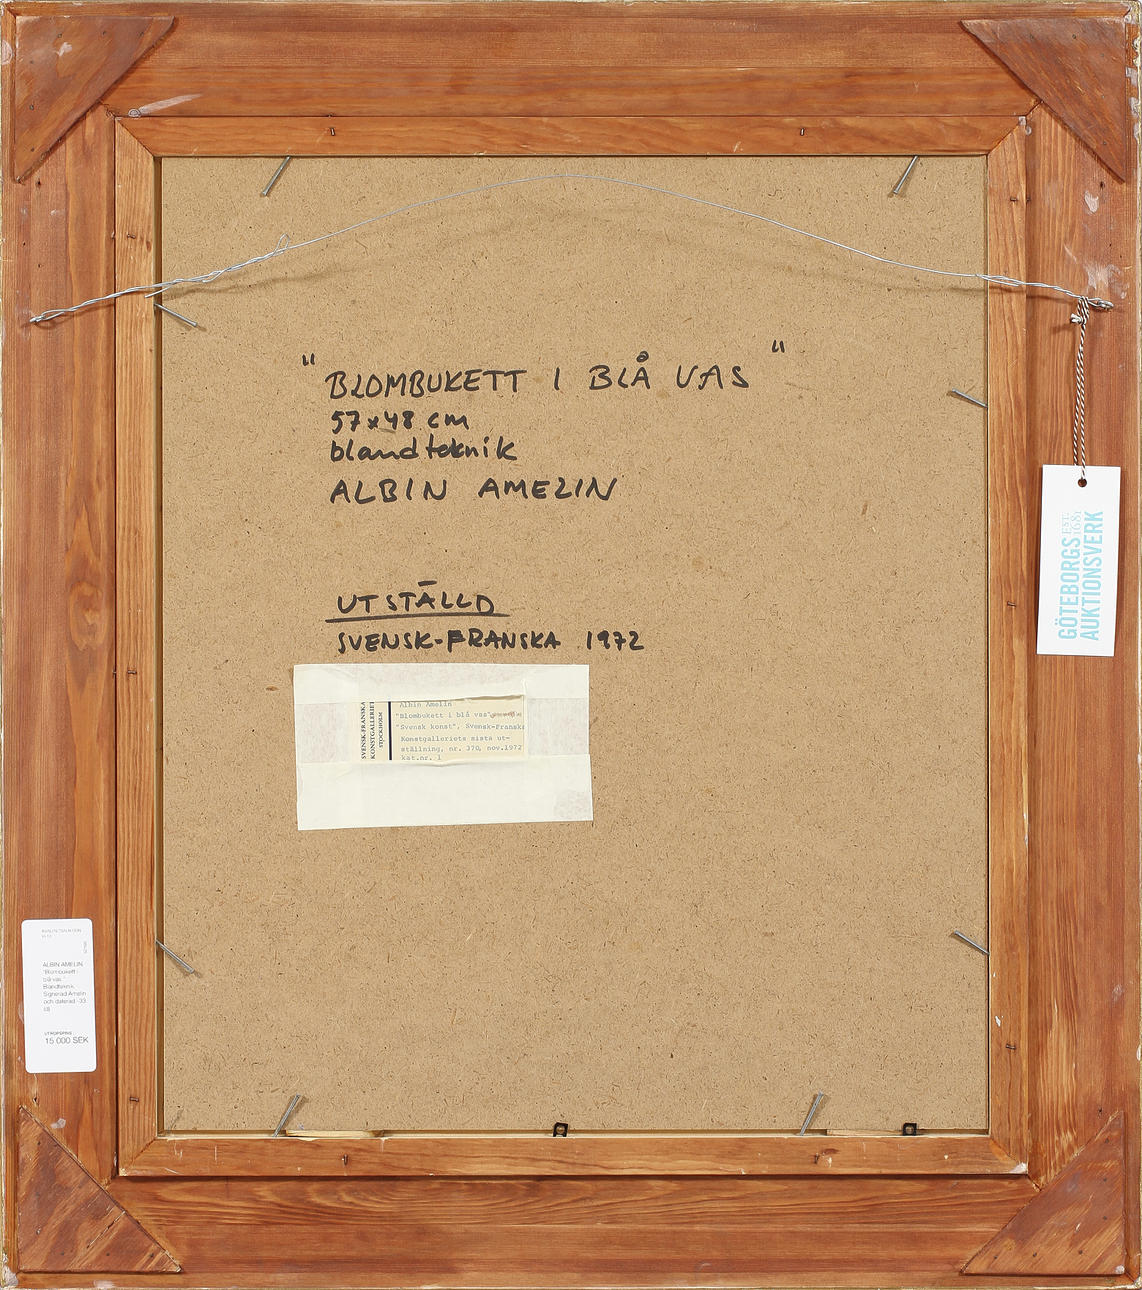 "BLOMBUKETT I BLÅ VAS"
57x48 cm
blandteknik
ALBIN AMELIN
UTSTÄLLD
SVENSK-FRANSKA 1972
SVENSK-FRANSKA
KONSTGALLERIET
STOCKHOLM
Albin Amelin
"Blombukett i blå vas"
"Svensk konst", Svensk-Franska
Konstgalleriets sista ut-
ställning, nr. 370, nov.1972
kat.nr. 1
GÖTEBORGS EST. 1681
AUKTIONSVERK
ALBIN AMELIN
"Blombukett i
blå vas."
Blandteknik.
Signerad Amelin
och daterad -33.
UTROPSPRIS
15 000 SEK